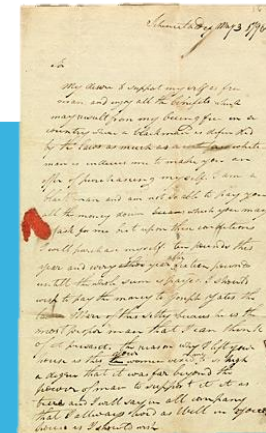 Schenectady May 3 179
Sir
My desire to support my self as free
man and enjoy all the benefits which
may result from my being free in a
country where a Blackman is defended
by the laws as much as a white
man is induces me to make you an
offer of purchaseing myself. I am a
Black man and am not so able to pay you
all the money down which you may
ask for me but upon these conditions
I will purchase myself. Ten pounds this
year and every year after fifteen pounds
until the whole sum is payed. I should
wish to pay the money to Joseph Yates the
because he is the
most proper man that I can think
of at present. The reason why I left your
house is this your woman vexed to so high
a degree that it was far beyond the
power of man to support it it is
true and I will say in all company
that I always lived as well in your
house as I should wish